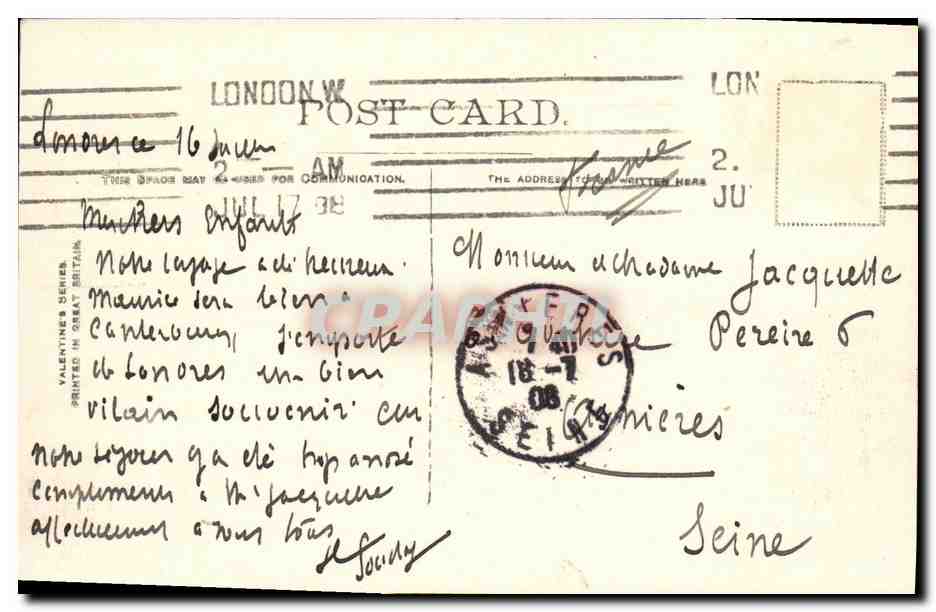 LONDON.W
LON
POST CARD.
Londres ce 16 Juillet
2 - AM
2.
THIS SPACE MAY BE USED FOR COMMUNICATION.
THE ADDRESS TO BE WRITTEN HERE
France
JUL 17 08
JU
Mes chers Enfants
Notre voyage a été heureux
Maurice sera bien a
Canterbury, j'emporte
de Londres un bien
vilain souvenir car
notre séjour y a été trop arrosé
compliments à Mr Jacquette
affectueusement à vous tous
VALENTINE'S SERIES.
PRINTED IN GREAT BRITAIN.
Monsieur et Madame Jacquette
Pereire 6
Asnières
Seine
ASNIERES
18 - 7
08
SEINE
CPARAMA